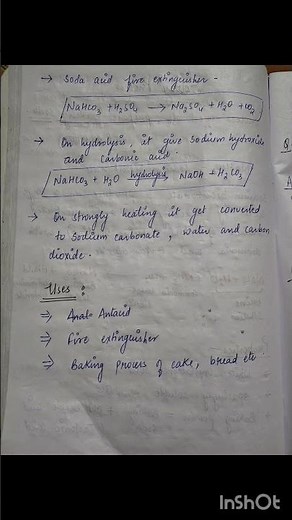 → Soda acid fire extinguisher -
NaHCO3 + H2SO4 → Na2SO4 + H2O + CO2
→ On hydrolysis it give Sodium hydroxide
and Carbonic acid.
NaHCO3 + H2O hydrolysis NaOH + H2CO3
→ On strongly heating it get converted
to Sodium carbonate, Water and Carbon
dioxide.
Uses :
⇒ Antacid
⇒ Fire extinguisher
⇒ Baking process of cake, bread etc
Q
A
InShOt